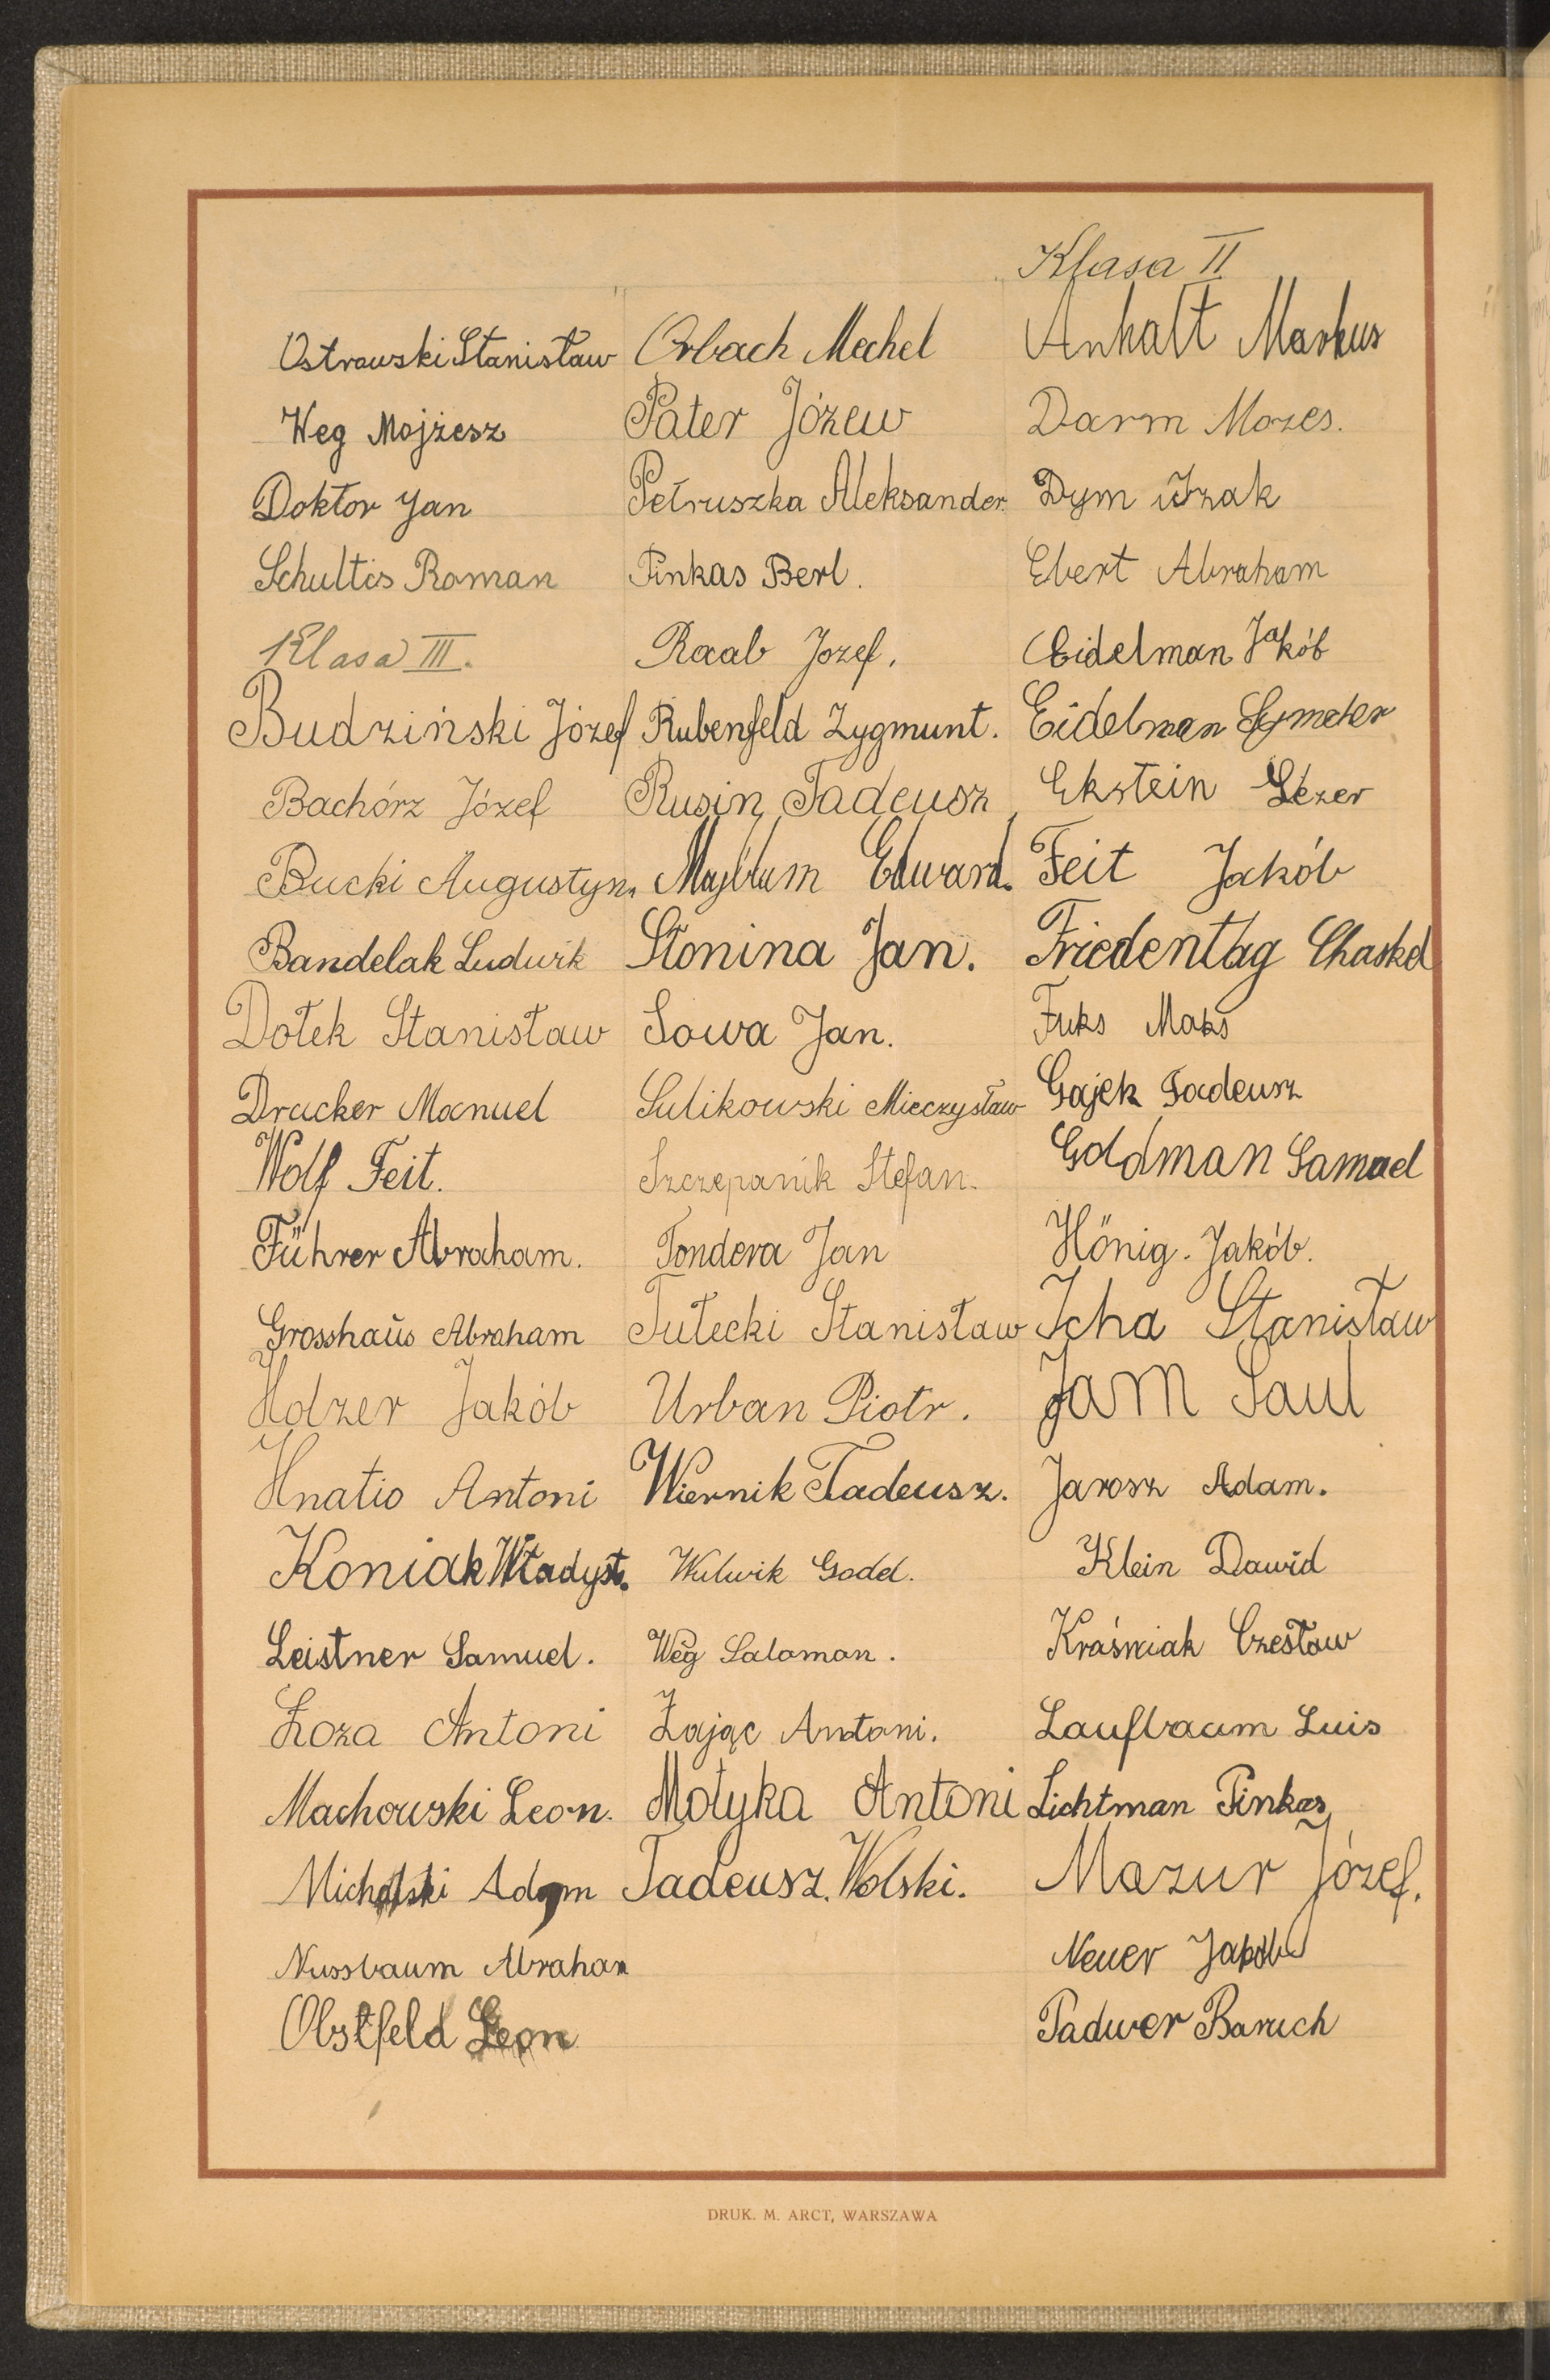 Ostrowski Stanisław
Weg Mojżesz
Doktor Jan
Schultis Roman
Klasa III.
Budziński Józef
Bachórz Józef
Bucki Augustyn.
Bandelak Ludwik
Dołek Stanisław
Drucker Manuel
Wolf Feit.
Führer Abraham.
Grosshaus Abraham
Holzer Jakób
Hnatio Antoni
Koniak Władysł.
Leistner Samuel.
Łoza Antoni
Machowski Leon.
Michalski Adam
Nussbaum Abraham
Obstfeld Leon
Orbach Mechel
Pater Józew
Petruszka Aleksander.
Pinkas Berl.
Raab Jozef.
Rubenfeld Zygmunt.
Rusin Tadeusz
Majblum Edward.
Słonina Jan.
Sowa Jan.
Sulikowski Mieczysław
Szczepanik Stefan.
Tondera Jan
Tutecki Stanisław
Urban Piotr.
Wiernik Tadeusz.
Wulwik Godel.
Weg Salomon.
Zając Antoni.
Motyka Antoni
Tadeusz. Wolski.
Klasa II
Anhalt Markus
Darm Mozes.
Dym Izak
Ebert Abraham
Eidelman Jakób
Eidelman
Ekstein Lezer
Feit Jakób
Friedentag Chaskel
Fuks Maks
Gajek Tadeusz
Goldman Samuel
Hönig. Jakób.
Icha Stanisław
Jam Saul
Jarosz Adam.
Klein Dawid
Kraśniak Czesław
Laufbaum Luis
Lichtman Pinkas
Mazur Józef.
Neuer Jakób
Padwer Baruch
DRUK. M. ARCT, WARSZAWA